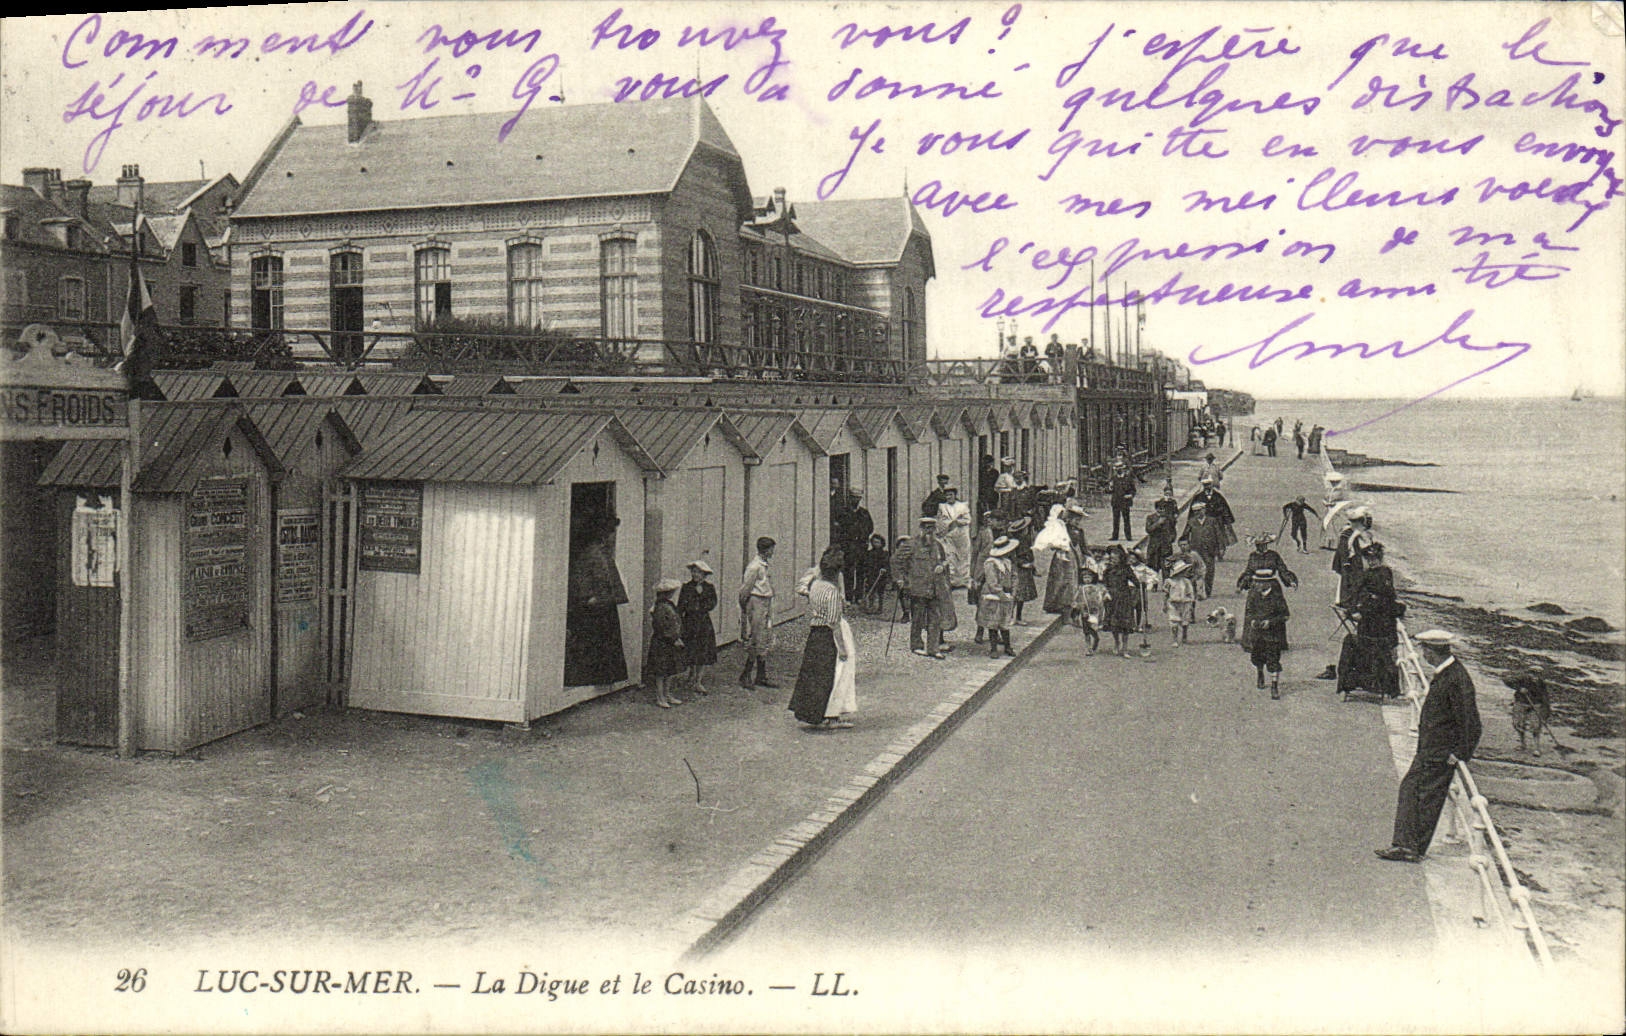 Comment vous trouvez vous? j'espère que le
séjour de G. vous a donné quelques distractions
Je vous quitte en vous envoyant
avec mes meilleurs voeux
l'expression de ma
respectueuse amitié
NS FROIDS
GRAND CONCERT
26 LUC-SUR-MER. — La Digue et le Casino. — LL.